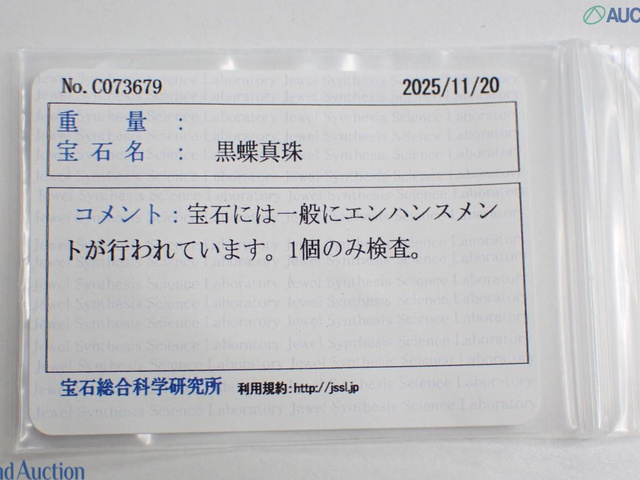 AUC
No.C073679
2025/11/20
重量:
宝石名: 黒蝶真珠
コメント:宝石には一般にエンハンスメン
トが行われています。1個のみ検査。
宝石総合科学研究所 利用規約:http://jssl.jp
nd Auction
Jewel Synthesis Science Laboratory